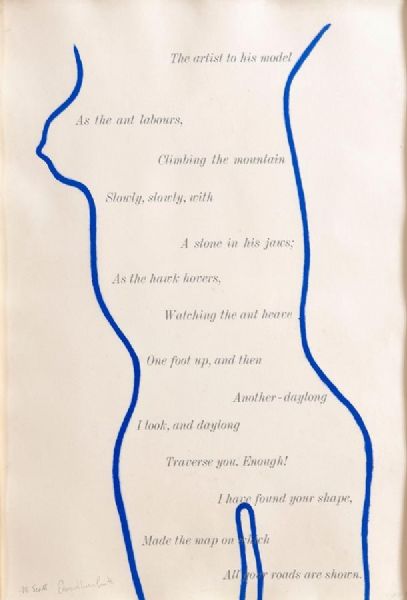 The artist to his model
As the ant labours,
Climbing the mountain
Slowly, slowly, with
A stone in his jaws;
As the hawk hovers,
Watching the ant heave
One foot up, and then
Another-daylong
I look, and daylong
Traverse you. Enough!
I have found your shape,
Made the map on which
All your roads are shown.
W Scott